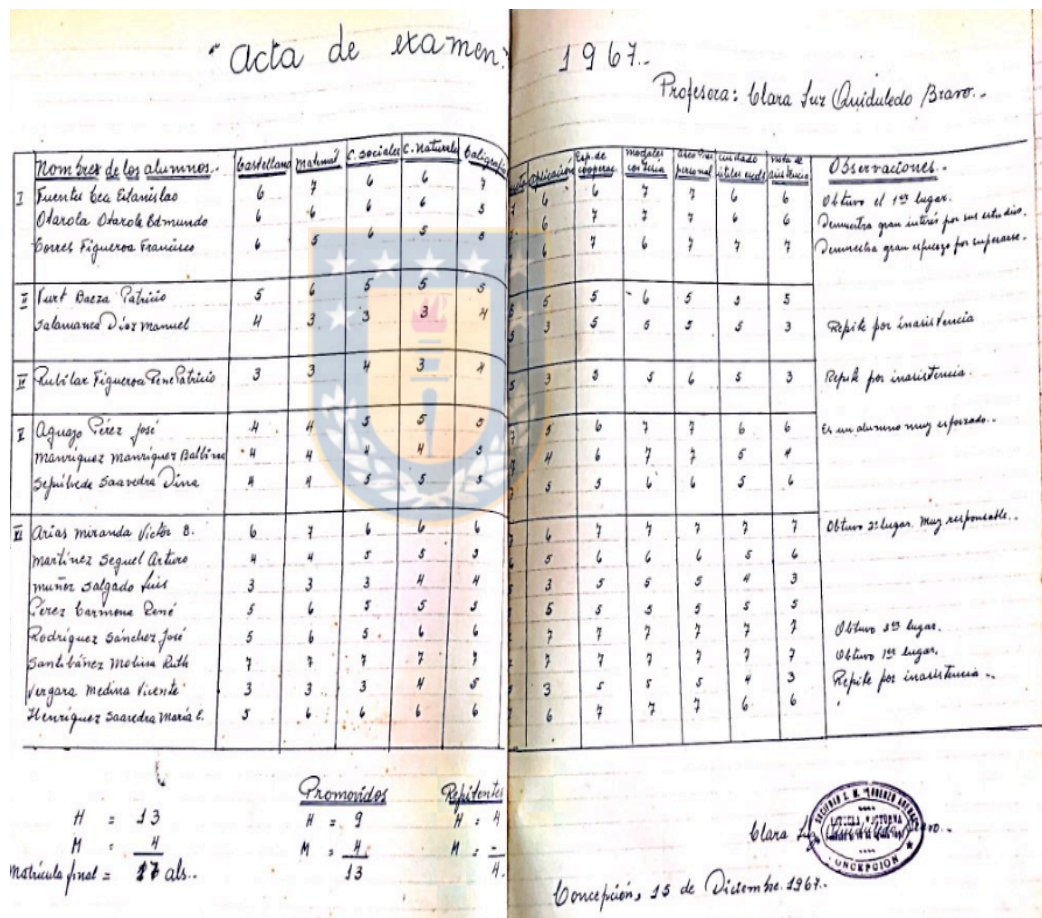 "Acta de examen" 1967.-
Profesora: Clara Luz Quiduledo Bravo.-
Nombres de los alumnos.- Castellano Matemat C. sociales C. naturales Caligrafía Aplicación Esp. de cooperac. modales cortesía Aseo Pres personal cuidado útiles escol nota de asistencia Observaciones.-
I Fuentes Cea Estanislao 6 7 6 6 7 6 6 7 7 6 6 Obtuvo el 1er lugar.
Otarola Otarola Edmundo 6 6 6 6 5 6 7 7 7 6 6 Demuestra gran interés por sus estudios.
Torres Figueroa Francisco 6 5 6 5 5 6 7 6 7 7 7 Demuestra gran esfuerzo por superarse.
II Baeza Patricio 5 6 5 5 5 5 5 5 6 5 5 5
Salamanca Díaz Manuel 4 3 3 3 4 5 3 5 5 5 5 3 Repite por inasistencia
IV Rubilar Figueroa Rene Patricio 3 3 4 3 4 5 3 5 5 6 5 3 Repite por inasistencia.
V Aguayo Pérez José 4 4 5 5 5 7 5 6 7 7 6 6 Es un alumno muy esforzado.-
Manríquez Manríquez Balbina 4 4 4 4 5 7 4 6 7 7 5 4
Sepúlveda Saavedra Dina 4 4 5 5 5 5 5 6 6 5 6
VI Arias Miranda Victor B. 6 7 6 6 6 6 7 7 7 7 7 Obtuvo 2º lugar. Muy responsable.-
Martínez Seguel Arturo 4 4 5 5 5 5 6 6 6 5 6
Muñoz Salgado Luis 3 3 3 4 4 3 5 5 5 4 3
Pérez Carmona René 5 6 5 5 5 5 5 5 5 5 5
Rodríguez Sánchez José 5 6 5 6 6 7 7 7 7 7 7 Obtuvo 3er lugar.
Santibáñez Molina Ruth 7 7 7 7 7 7 7 7 7 7 7 Obtuvo 1er lugar.
Vergara Medina Vicente 3 3 3 4 5 3 5 5 5 4 3 Repite por inasistencia.-
Henríquez Saavedra María E. 5 6 6 6 6 6 7 7 7 6 6
Promovidos Repitentes
H = 13 H = 9 H = 4
M = 4 M = 4 M = -
Matrícula final = 17 als.- 13 4.
Clara
CONCEPCIÓN
Concepción, 15 de Diciembre 1967.-